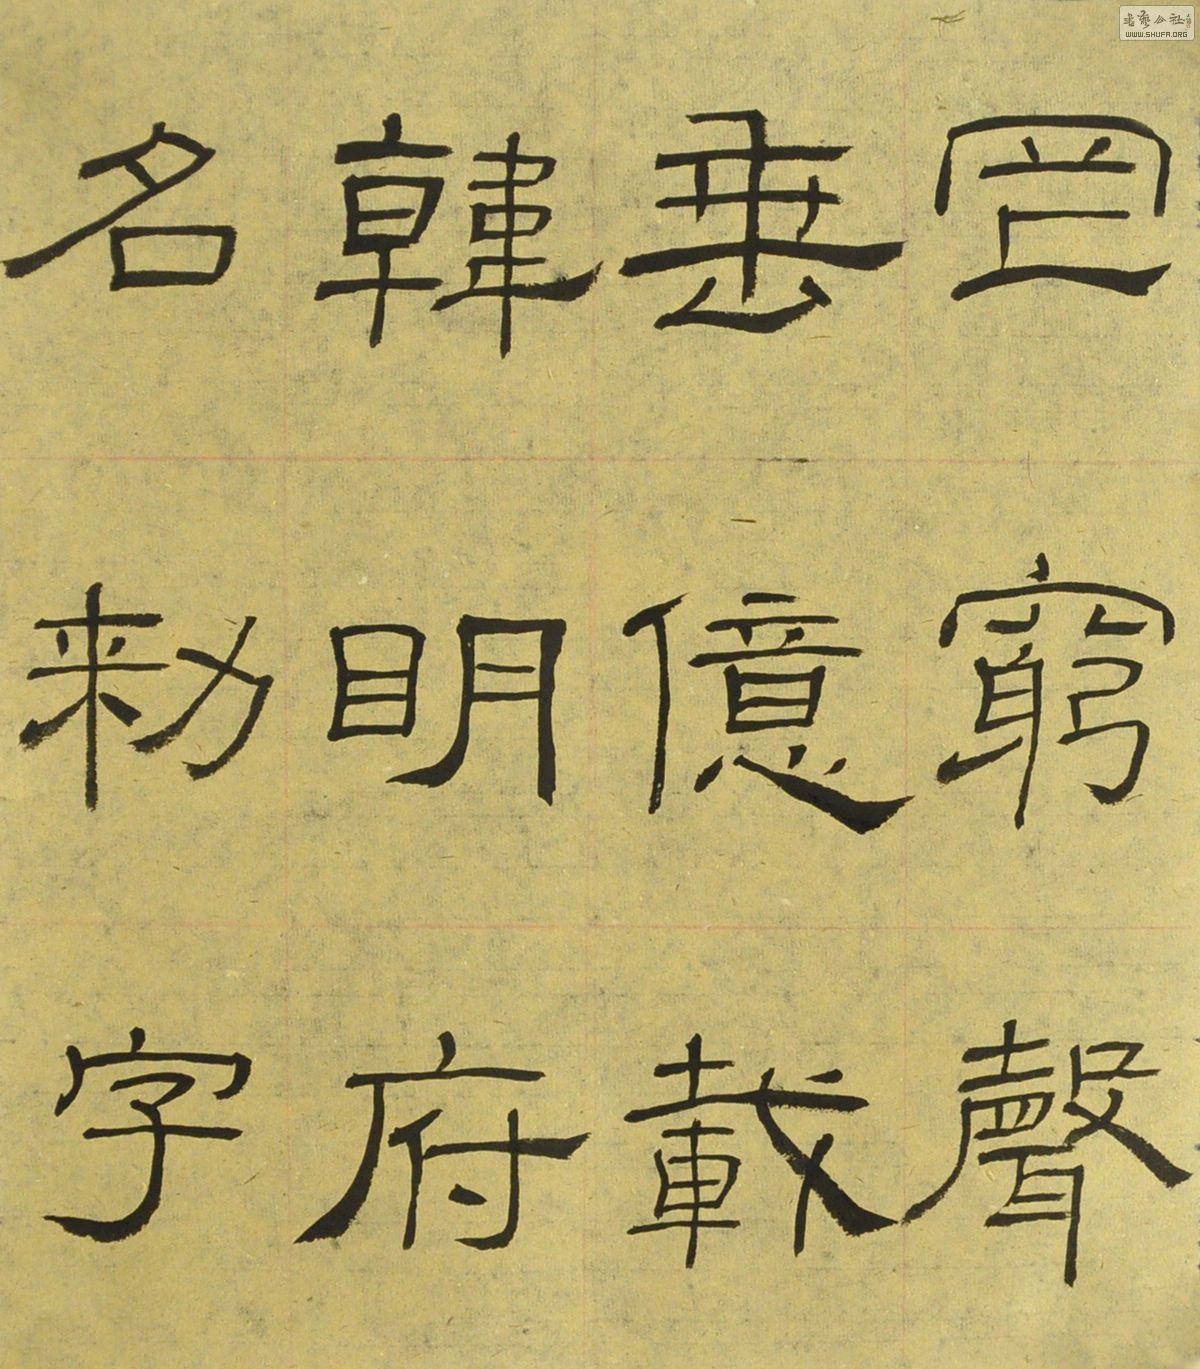 罔窮聲
垂億載
韓眀府
名勑字
書藝公社
WWW.SHUFA.ORG